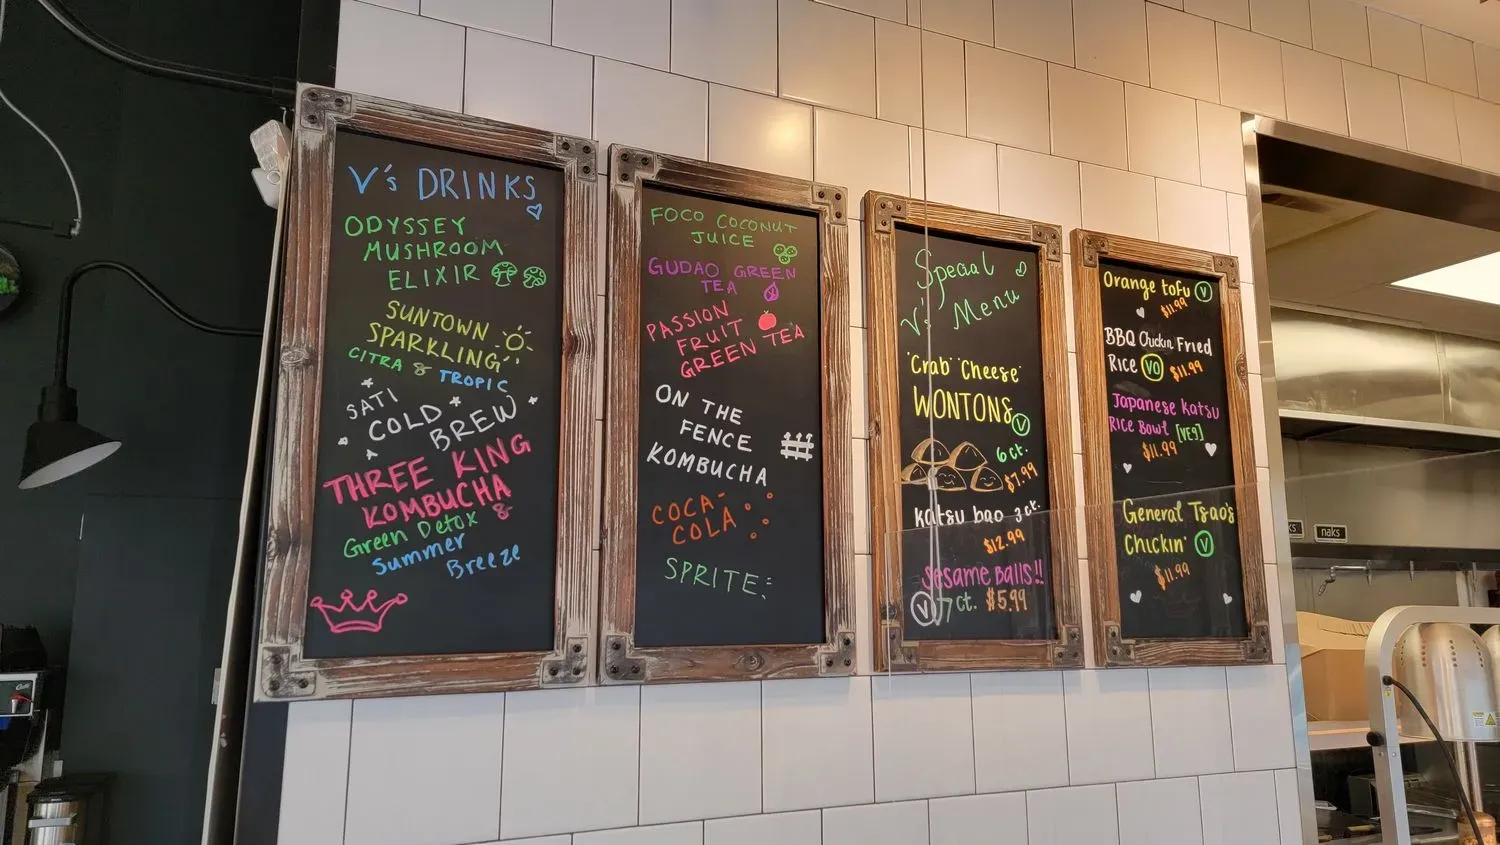 V's DRINKS
ODYSSEY
MUSHROOM
ELIXIR
SUNTOWN
SPARKLING
CITRA & TROPIC
SATI
COLD
BREW
THREE KING
KOMBUCHA
Green Detox &
Summer
Breeze
FOCO COCONUT
JUICE
GUDAO GREEN
TEA
PASSION
FRUIT
GREEN TEA
ON THE
FENCE
KOMBUCHA
COCA-
COLA
SPRITE
Special
V's Menu
"Crab" Cheese"
WONTONS V
6 ct.
$7.99
katsu bao 3 ct.
$12.99
Sesame Balls!!
V 7 ct. $5.99
Orange tofu V
$11.99
BBQ Chickin Fried
Rice VO $11.99
Japanese Katsu
Rice Bowl [VEG]
$11.99
General Tsao's
Chickin' V
$11.99
naks